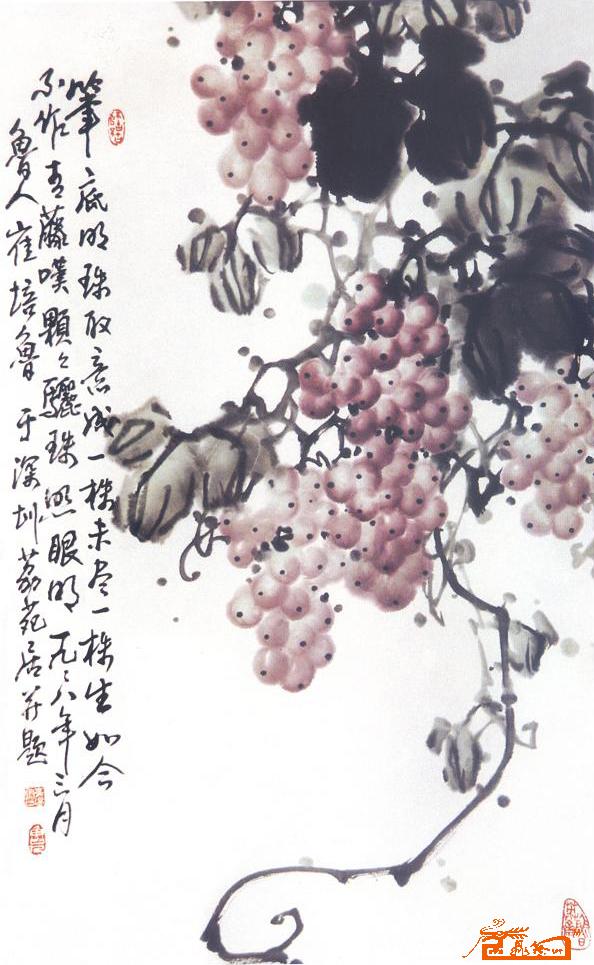 筆底明珠取意成一株未尽一株生如今
不作青藤嘆顆々驪珠照眼明一九九八年三月
魯人崔培魯于深圳荔苑居并題